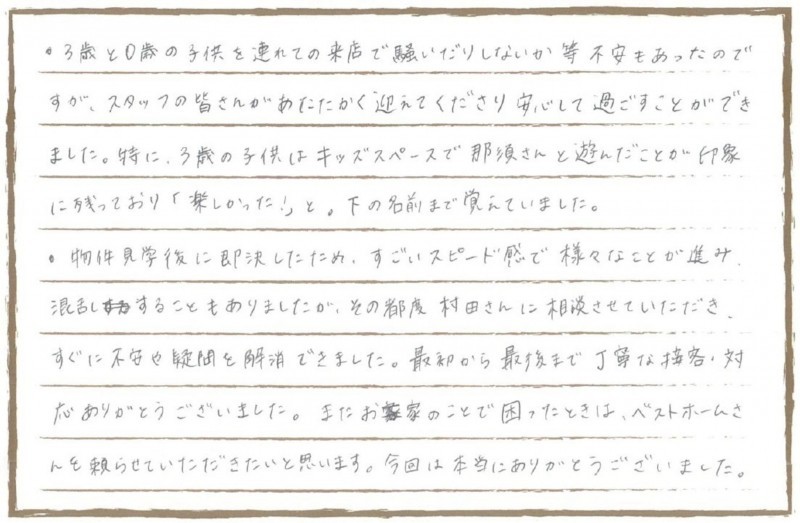 ・3歳と0歳の子供を連れての来店で騒いだりしないか等 不安もあったので
すが、スタッフの皆さんがあたたかく迎えてくださり安心して過ごすことができ
ました。特に、3歳の子供はキッズスペースで那須さんと遊んだことが印象
に残っており「楽しかった!」と。下の名前まで覚えていました。
・物件見学後に即決したため、すごいスピード感で様々なことが進み、
混乱しすることもありましたが、その都度村田さんに相談させていただき、
すぐに不安や疑問を解消できました。最初から最後まで丁寧な接客・対
応ありがとうございました。またお家のことで困ったときは、ベストホームさ
んを頼らせていただきたいと思います。今回は本当にありがとうございました。